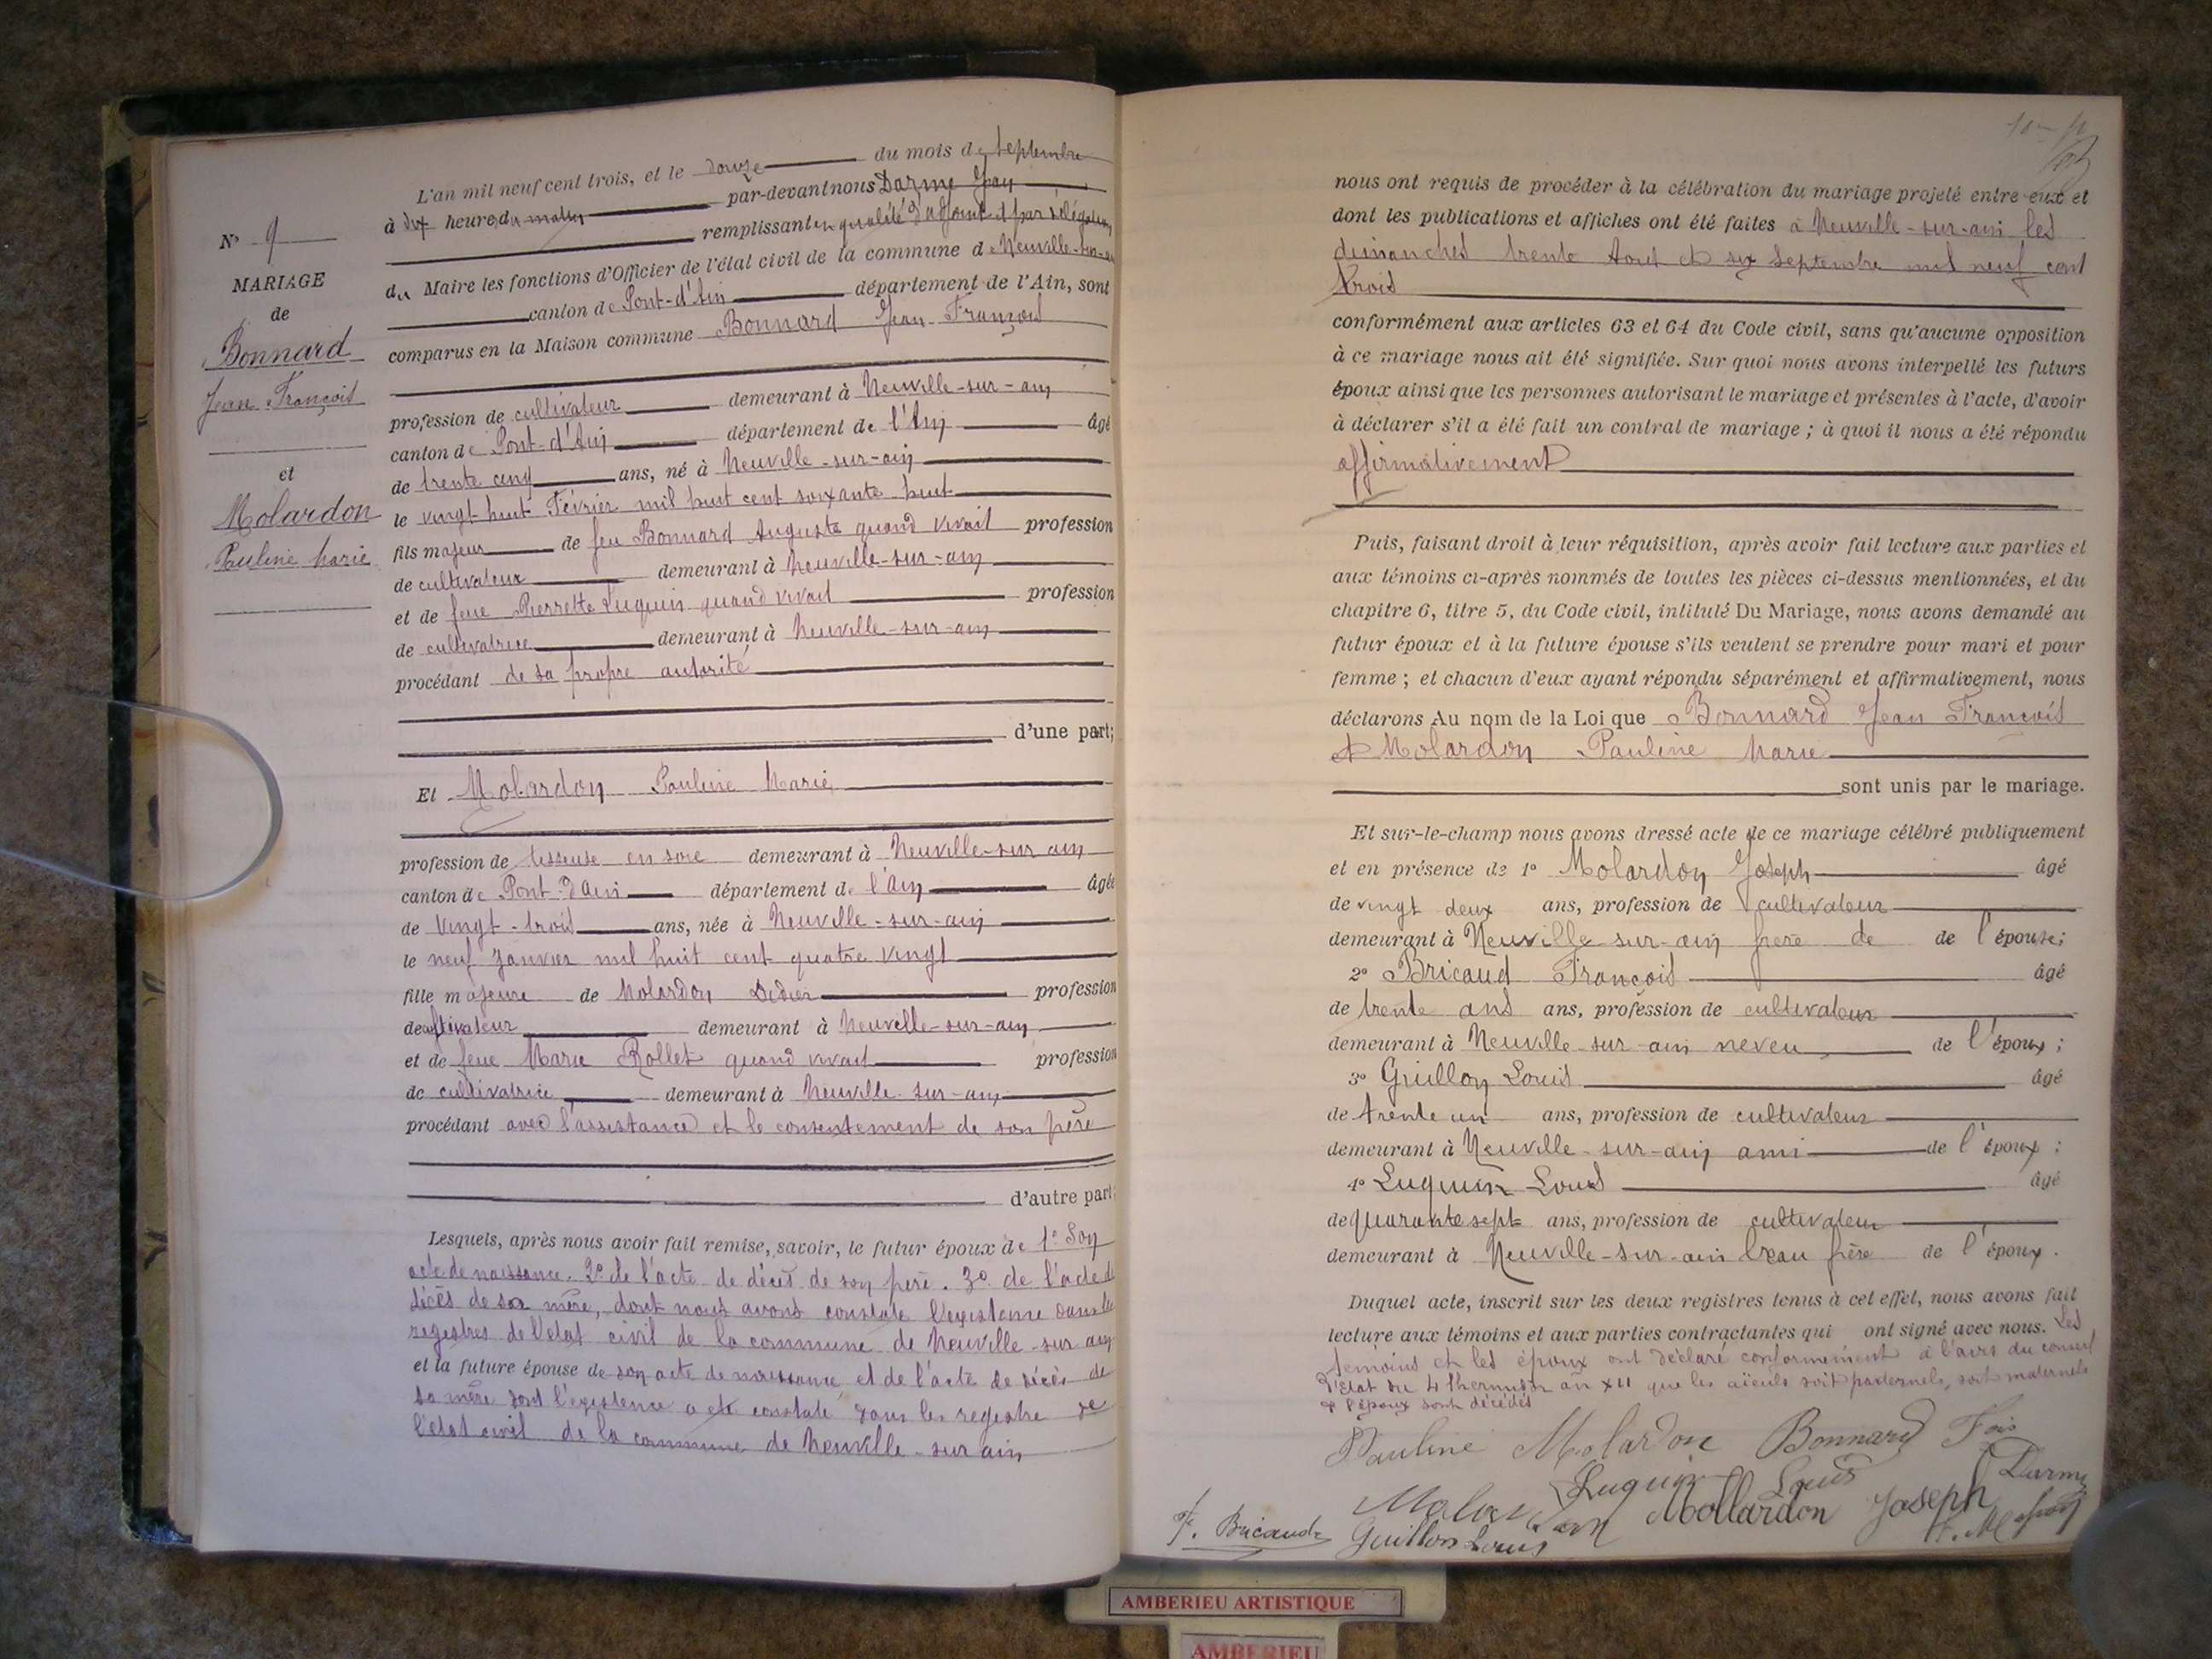 N° 9
MARIAGE
de
Bonnard
Jean François
et
Molardon
Pauline Marie
L'an mil neuf cent trois, et le douze du mois de Septembre
à dix heures du matin par-devant nous Darme Jean
remplissant en qualité d'adjoint et par délégation
du Maire les fonctions d'Officier de l'état civil de la commune de Neuville-sur-ain
canton de Pont-d'Ain département de l'Ain, sont
comparus en la Maison commune Bonnard Jean François
profession de cultivateur demeurant à Neuville-sur-ain
canton de Pont-d'Ain département de l'Ain âgé
de trente cinq ans, né à Neuville-sur-ain
le vingt huit Février mil huit cent soixante huit
fils majeur de feu Bonnard Auguste quand vivait profession
de cultivateur demeurant à Neuville-sur-ain
et de feue Pierrette Luquin quand vivait profession
de cultivatrice demeurant à Neuville-sur-ain
procédant de sa propre autorité
d'une part;
Et Molardon Pauline Marie
profession de tisseuse en soie demeurant à Neuville-sur ain
canton de Pont-d'ain département de l'ain âgée
de vingt-trois ans, née à Neuville-sur-ain
le neuf Janvier mil huit cent quatre vingt
fille majeure de Molardon Didier profession
de cultivateur demeurant à Neuville-sur-ain
et de feue Marie Rollet quand vivait profession
de cultivatrice demeurant à Neuville-sur-ain
procédant avec l'assistance et le consentement de son père
d'autre part;
Lesquels, après nous avoir fait remise, savoir, le futur époux de 1° Son
acte de naissance. 2° de l'acte de décès de son père. 3° de l'acte de
décès de sa mère, dont nous avons constaté l'existence dans les
registres de l'état civil de la commune de Neuville-sur ain
et la future épouse de son acte de naissance et de l'acte de décès de
sa mère dont l'existence a été constaté dans les registre de
l'état civil de la commune de Neuville-sur ain
nous ont requis de procéder à la célébration du mariage projeté entre eux et
dont les publications et affiches ont été faites à Neuville-sur-ain les
dimanches trente Aout et six Septembre mil neuf cent
trois
conformément aux articles 63 et 64 du Code civil, sans qu'aucune opposition
à ce mariage nous ait été signifiée. Sur quoi nous avons interpellé les futurs
époux ainsi que les personnes autorisant le mariage et présentes à l'acte, d'avoir
à déclarer s'il a été fait un contrat de mariage ; à quoi il nous a été répondu
affirmativement
Puis, faisant droit à leur réquisition, après avoir fait lecture aux parties et
aux témoins ci-après nommés de toutes les pièces ci-dessus mentionnées, et du
chapitre 6, titre 5, du Code civil, intitulé Du Mariage, nous avons demandé au
futur époux et à la future épouse s'ils veulent se prendre pour mari et pour
femme ; et chacun d'eux ayant répondu séparément et affirmativement, nous
déclarons Au nom de la Loi que Bonnard Jean François
et Molardon Pauline Marie
sont unis par le mariage.
Et sur-le-champ nous avons dressé acte de ce mariage célébré publiquement
et en présence de 1° Molardon Joseph âgé
de vingt deux ans, profession de cultivateur
demeurant à Neuville-sur-ain frere de de l'épouse;
2° Bricaud François âgé
de trente ans ans, profession de cultivateur
demeurant à Neuville-sur-ain neveu de l'époux;
3° Guillon Louis âgé
de trente un ans, profession de cultivateur
demeurant à Neuville-sur-ain ami de l'époux;
4° Luquin Louis âgé
de quarante sept ans, profession de cultivateur
demeurant à Neuville-sur-ain beau frère de l'époux.
Duquel acte, inscrit sur les deux registres tenus à cet effet, nous avons fait
lecture aux témoins et aux parties contractantes qui ont signé avec nous. Les
témoins et les époux ont déclaré conformement à l'avis du conseil
d'Etat du 4 thermidor an XII que les aïeuls soit paternels, soit maternels
de l'époux sont décédés
Pauline Molardon Bonnard Fois
Luquin Louis Darme
Molardon Mollardon Joseph
F. Bricaud Guillon Louis
AMBERIEU ARTISTIQUE
AMBERIEU